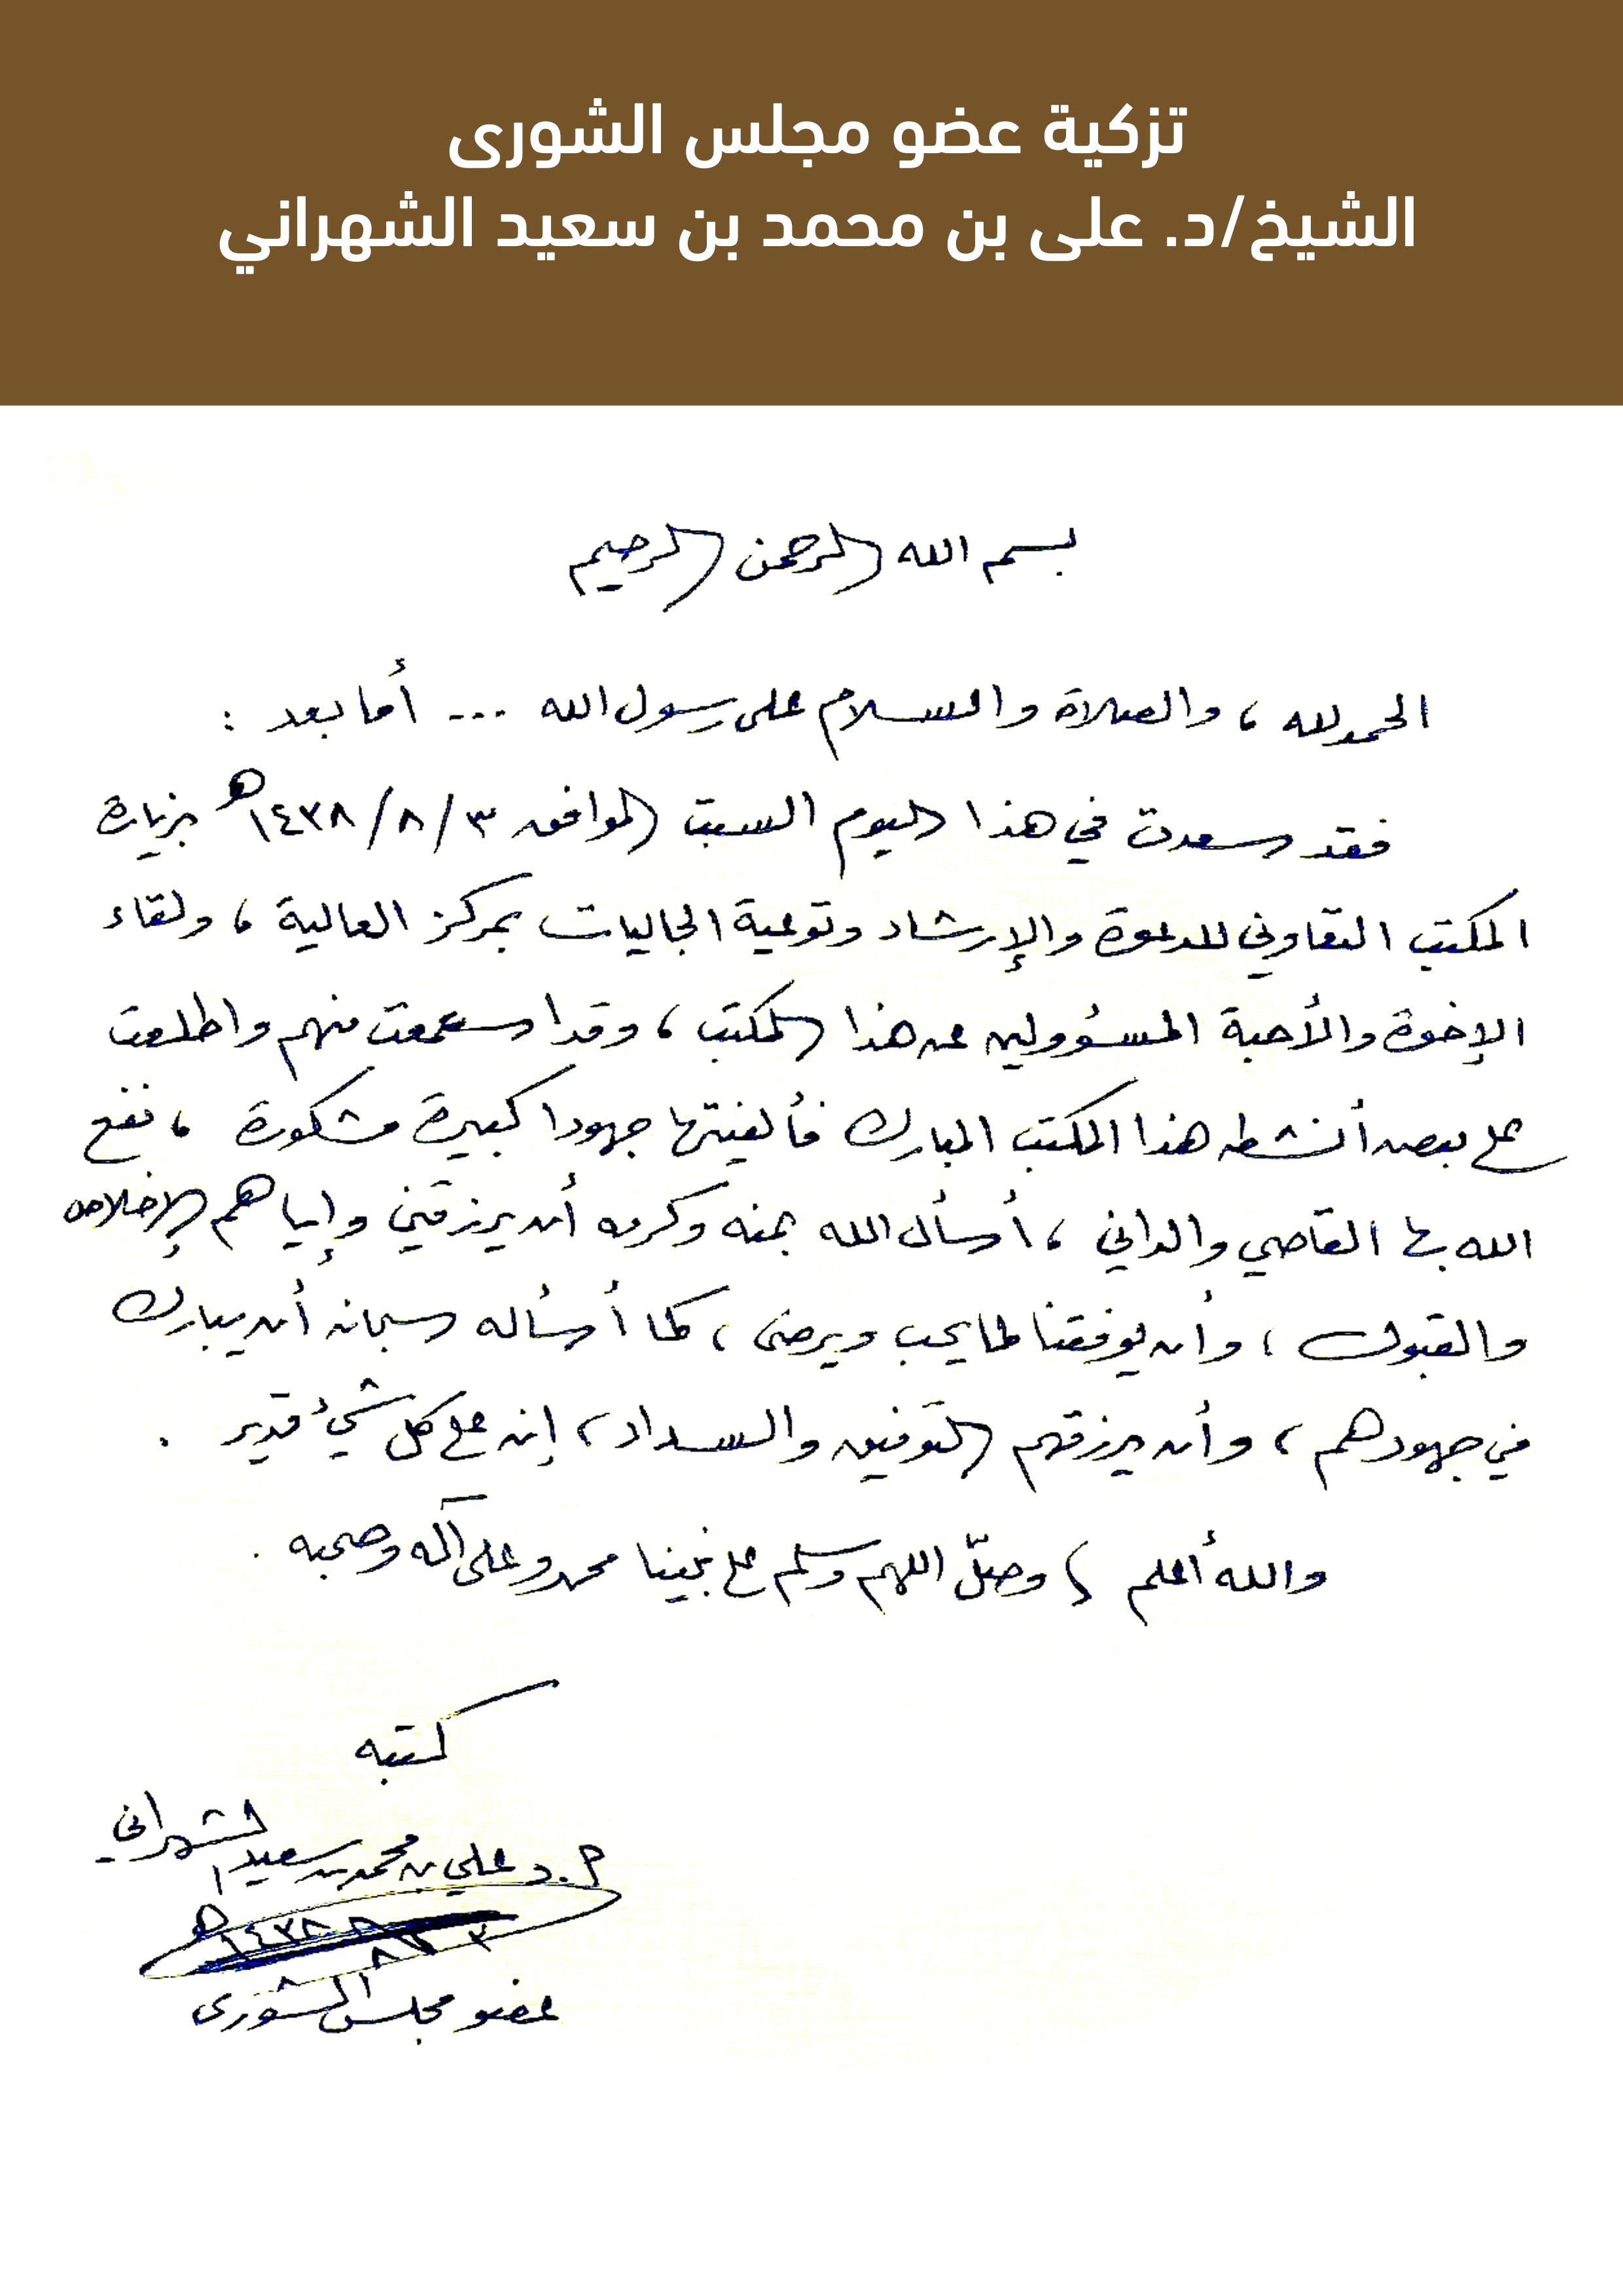 تزكية عضو مجلس الشورى
الشيخ/د. على بن محمد بن سعيد الشهراني
بسم الله الرحمن الرحيم
الحمد لله ، والصلاة والسلام على رسول الله ... أما بعد :
فقد سعدت في هذا اليوم السبت الموافق ٣/ ٨/ ١٤٣٨هـ بزيارة
المكتب التعاوني للدعوة والإرشاد وتوعية الجاليات بمركز العالية ، ولقاء
الإخوة والأحبة المسؤولين عن هذا المكتب ، وقد استمعت منهم واطلعت
على بعض أنشطه هذا المكتب المبارك فألفيتها جهودا كبيرة مشكورة ، نفع
الله بها القاصي والداني ، أسأل الله بمنه وكرمه أن يرزقني وإياهم الإخلاص
والقبول ، وأن يوفقنا لما يحب ويرضى ، كما أسأله سبحانه أن يبارك
في جهودهم ، وأن يرزقهم التوفيق والسداد ، إنه على كل شيء قدير .
والله أعلم ، وصلّ اللهم وسلم على نبينا محمد وعلى آله وصحبه .
كتبه
أ.د علي بن محمد بن سعيد الشهراني
٣ ٨ ١٤٣٨هـ
عضو مجلس الشورى